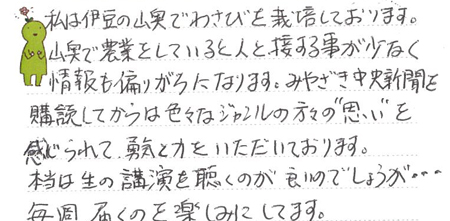 私は伊豆の山奥でわさびを栽培しております。
山奥で農業をしていると人と接する事が少なく
情報も偏りがちになります。みやざき中央新聞を
購読してからは色々なジャンルの方々の"思い"を
感じられて、勇気と力をいただいております。
本当は生の講演を聴くのが良いのでしょうが…
毎週届くのを楽しみにしてます。